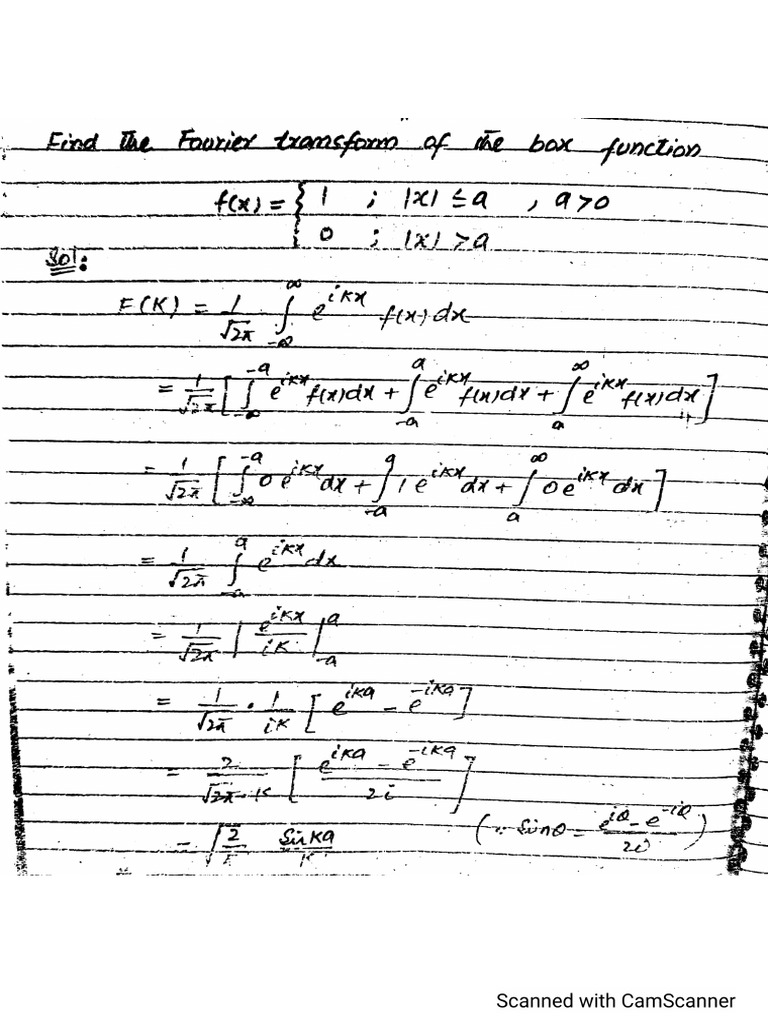 Find the Fourier transform of the box function
f(x) = { 1 ; |x| ≤ a , a>0
0 ; |x| > a
Sol:
F(K) = 1/√2π ∫_{-∞}^{∞} e^{iKx} f(x) dx
= 1/√2π [ ∫_{-∞}^{-a} e^{iKx} f(x)dx + ∫_{-a}^{a} e^{iKx} f(x)dx + ∫_{a}^{∞} e^{iKx} f(x)dx ]
= 1/√2π [ ∫_{-∞}^{-a} 0 e^{iKx} dx + ∫_{-a}^{a} 1 e^{iKx} dx + ∫_{a}^{∞} 0 e^{iKx} dx ]
= 1/√2π ∫_{-a}^{a} e^{iKx} dx
= 1/√2π | e^{iKx}/iK |_{-a}^{a}
= 1/√2π · 1/iK [ e^{iKa} - e^{-iKa} ]
= 2/√2π · K [ e^{iKa} - e^{-iKa} / 2i ]
= √2/ sinKa/ (∵ Sinθ = e^{iθ} - e^{-iθ} / 2i)
Scanned with CamScanner